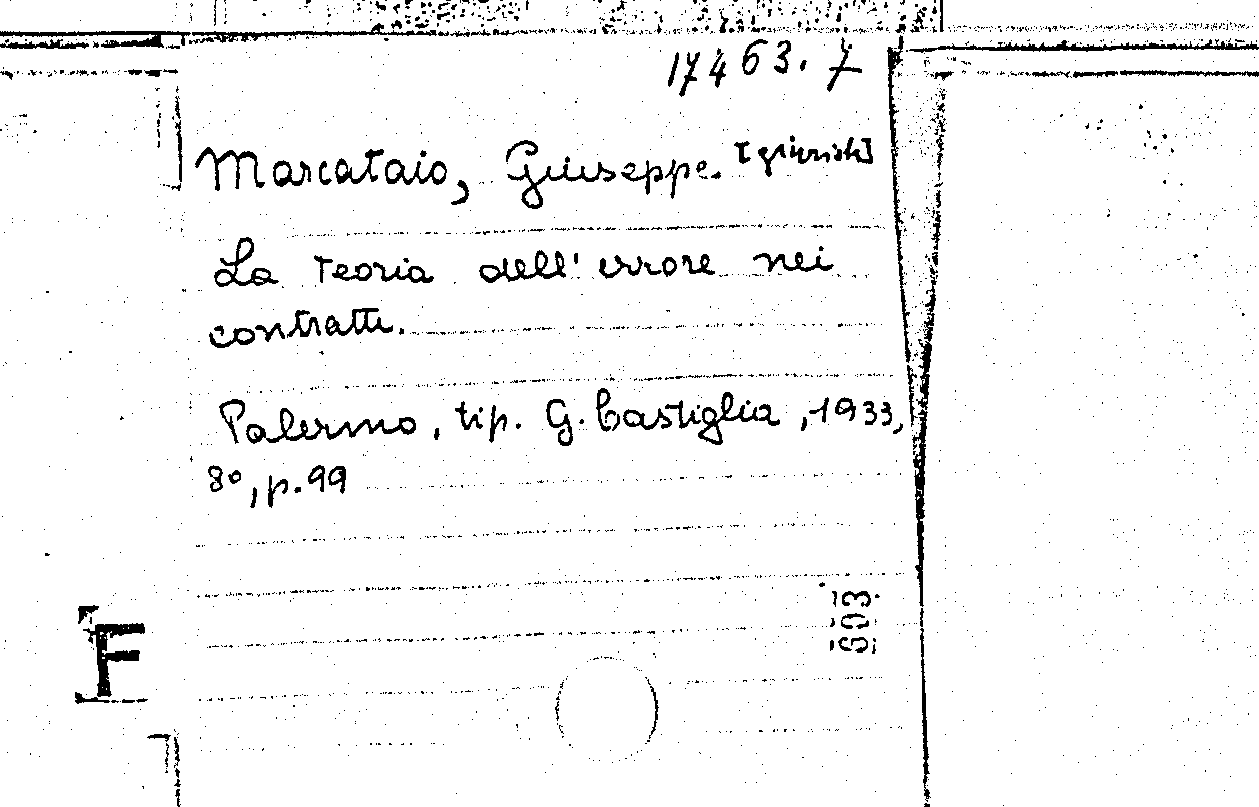 17463.7
Marcataio, Giuseppe. [giurista]
La teoria dell'errore nei
contratti.
Palermo, tip. G. Castiglia, 1933,
8°, p. 99
F
603